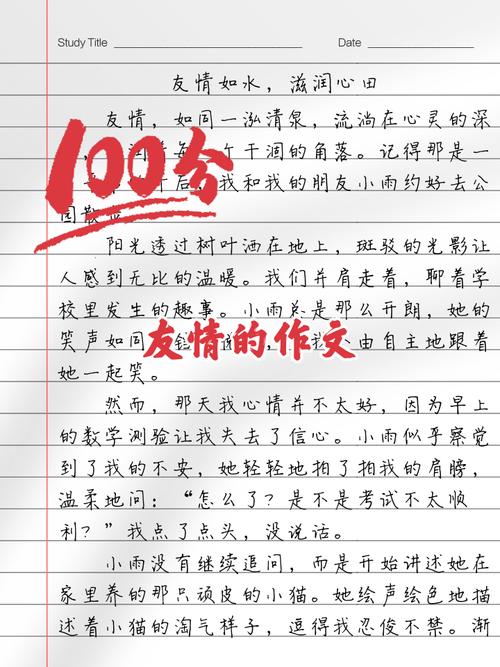 Study Title
Date
友情如水，滋润心田
友情，如同一泓清泉，流淌在心灵的深
个干涸的角落。记得那是一
后，我和我的朋友小雨约好去公
园散
100分
阳光透过树叶洒在地上，斑驳的光影让
人感到无比的温暖。我们并肩走着，聊着学
校里发生的趣事。小雨总是那么开朗，她的
笑声如同 由自主地跟着
友情的作文
她一起笑。
然而，那天我心情并不太好，因为早上
的数学测验让我失去了信心。小雨似乎察觉
到了我的不安，她轻轻地拍了拍我的肩膀，
温柔地问：“怎么了？是不是考试不太顺
利？”我点了点头，没说话。
小雨没有继续追问，而是开始讲述她在
家里养的那只顽皮的小猫。她绘声绘色地描
述着小猫的淘气样子，逗得我忍俊不禁。渐